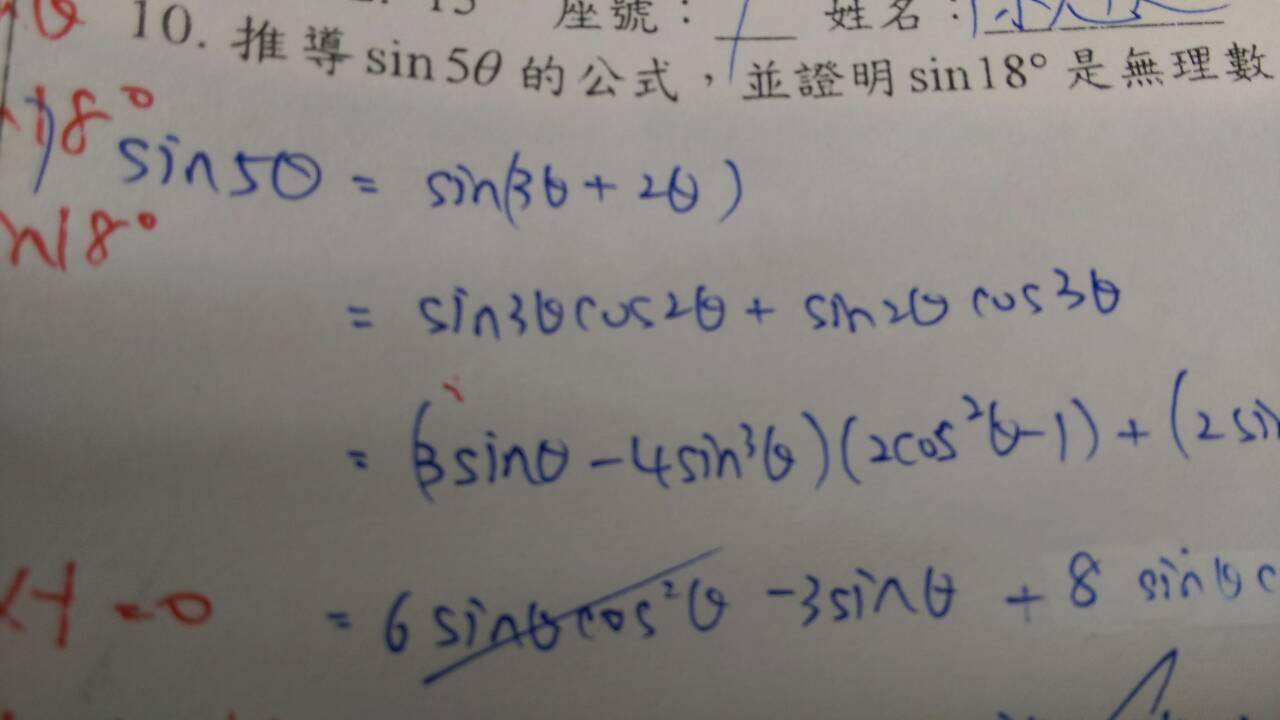 座號： 姓名：
10. 推導 sin 5θ 的公式，並證明 sin18° 是無理數
18°
sin5θ = sin(3θ + 2θ)
n18°
= sin3θcos2θ + sin2θ cos3θ
= (3sinθ - 4sin³θ)(2cos²θ-1) + (2 sin
= 6 sinθcos²θ - 3sinθ + 8 sinθ c
= 0